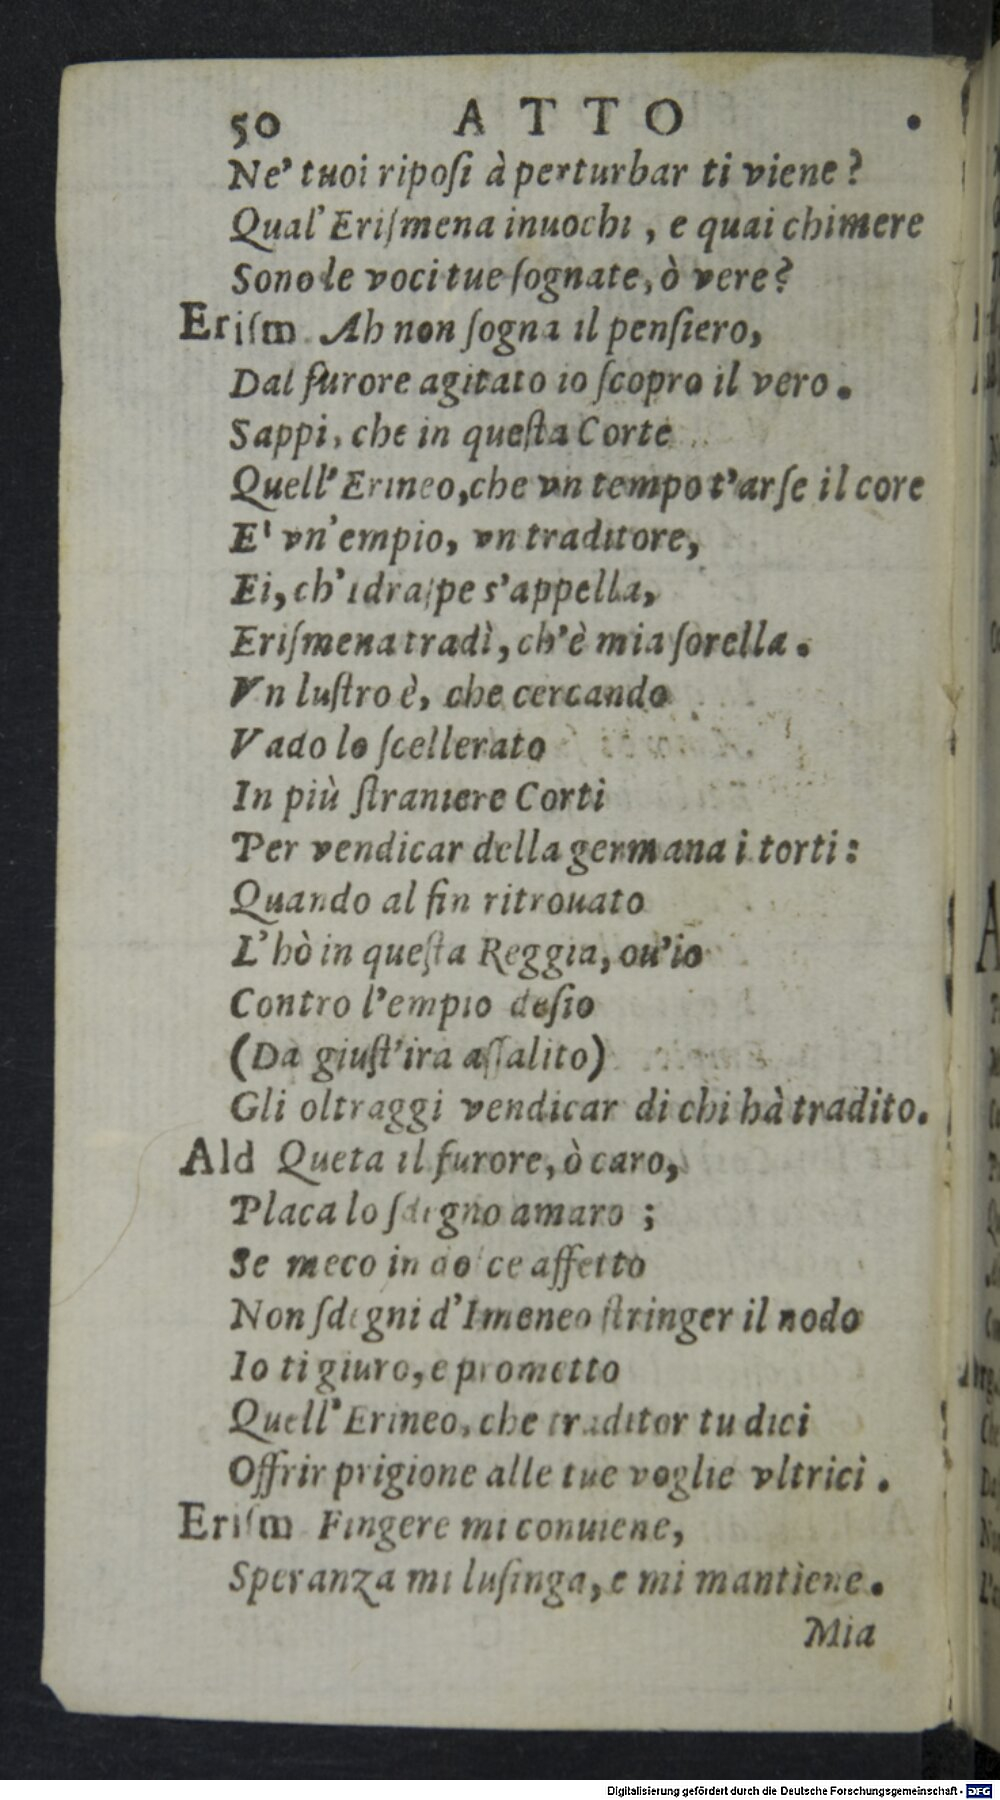 50 ATTO
Ne' tuoi riposi à perturbar ti viene?
Qual' Eriſmena inuochi, e quai chimere
Sono le voci tue ſognate, ò vere?
Eriſm Ah non ſogna il penſiero,
Dal furore agitato io ſcopro il vero.
Sappi, che in queſta Corte
Quell' Erineo, che vn tempo t'arſe il core
E' vn'empio, vn traditore,
Ei, ch'idraſpe s'appella,
Eriſmena tradì, ch'è mia ſorella.
Vn luſtro è, che cercando
Vado lo ſcellerato
In più ſtraniere Corti
Per vendicar della germana i torti:
Quando al fin ritrouato
L'hò in queſta Reggia, ou'io
Contro l'empio deſio
(Da giuſt'ira aſſalito)
Gli oltraggi vendicar di chi hà tradito.
Ald Queta il furore, ò caro,
Placa lo ſdegno amaro;
Se meco in dolce affetto
Non ſdegni d'Imeneo ſtringer il nodo
Io ti giuro, e prometto
Quell' Erineo, che traditor tu dici
Offrir prigione alle tue voglie vltrici.
Eriſm Fingere mi conuiene,
Speranza mi luſinga, e mi mantiene.
Mia
Digitalisierung gefördert durch die Deutsche Forschungsgemeinschaft - DFG